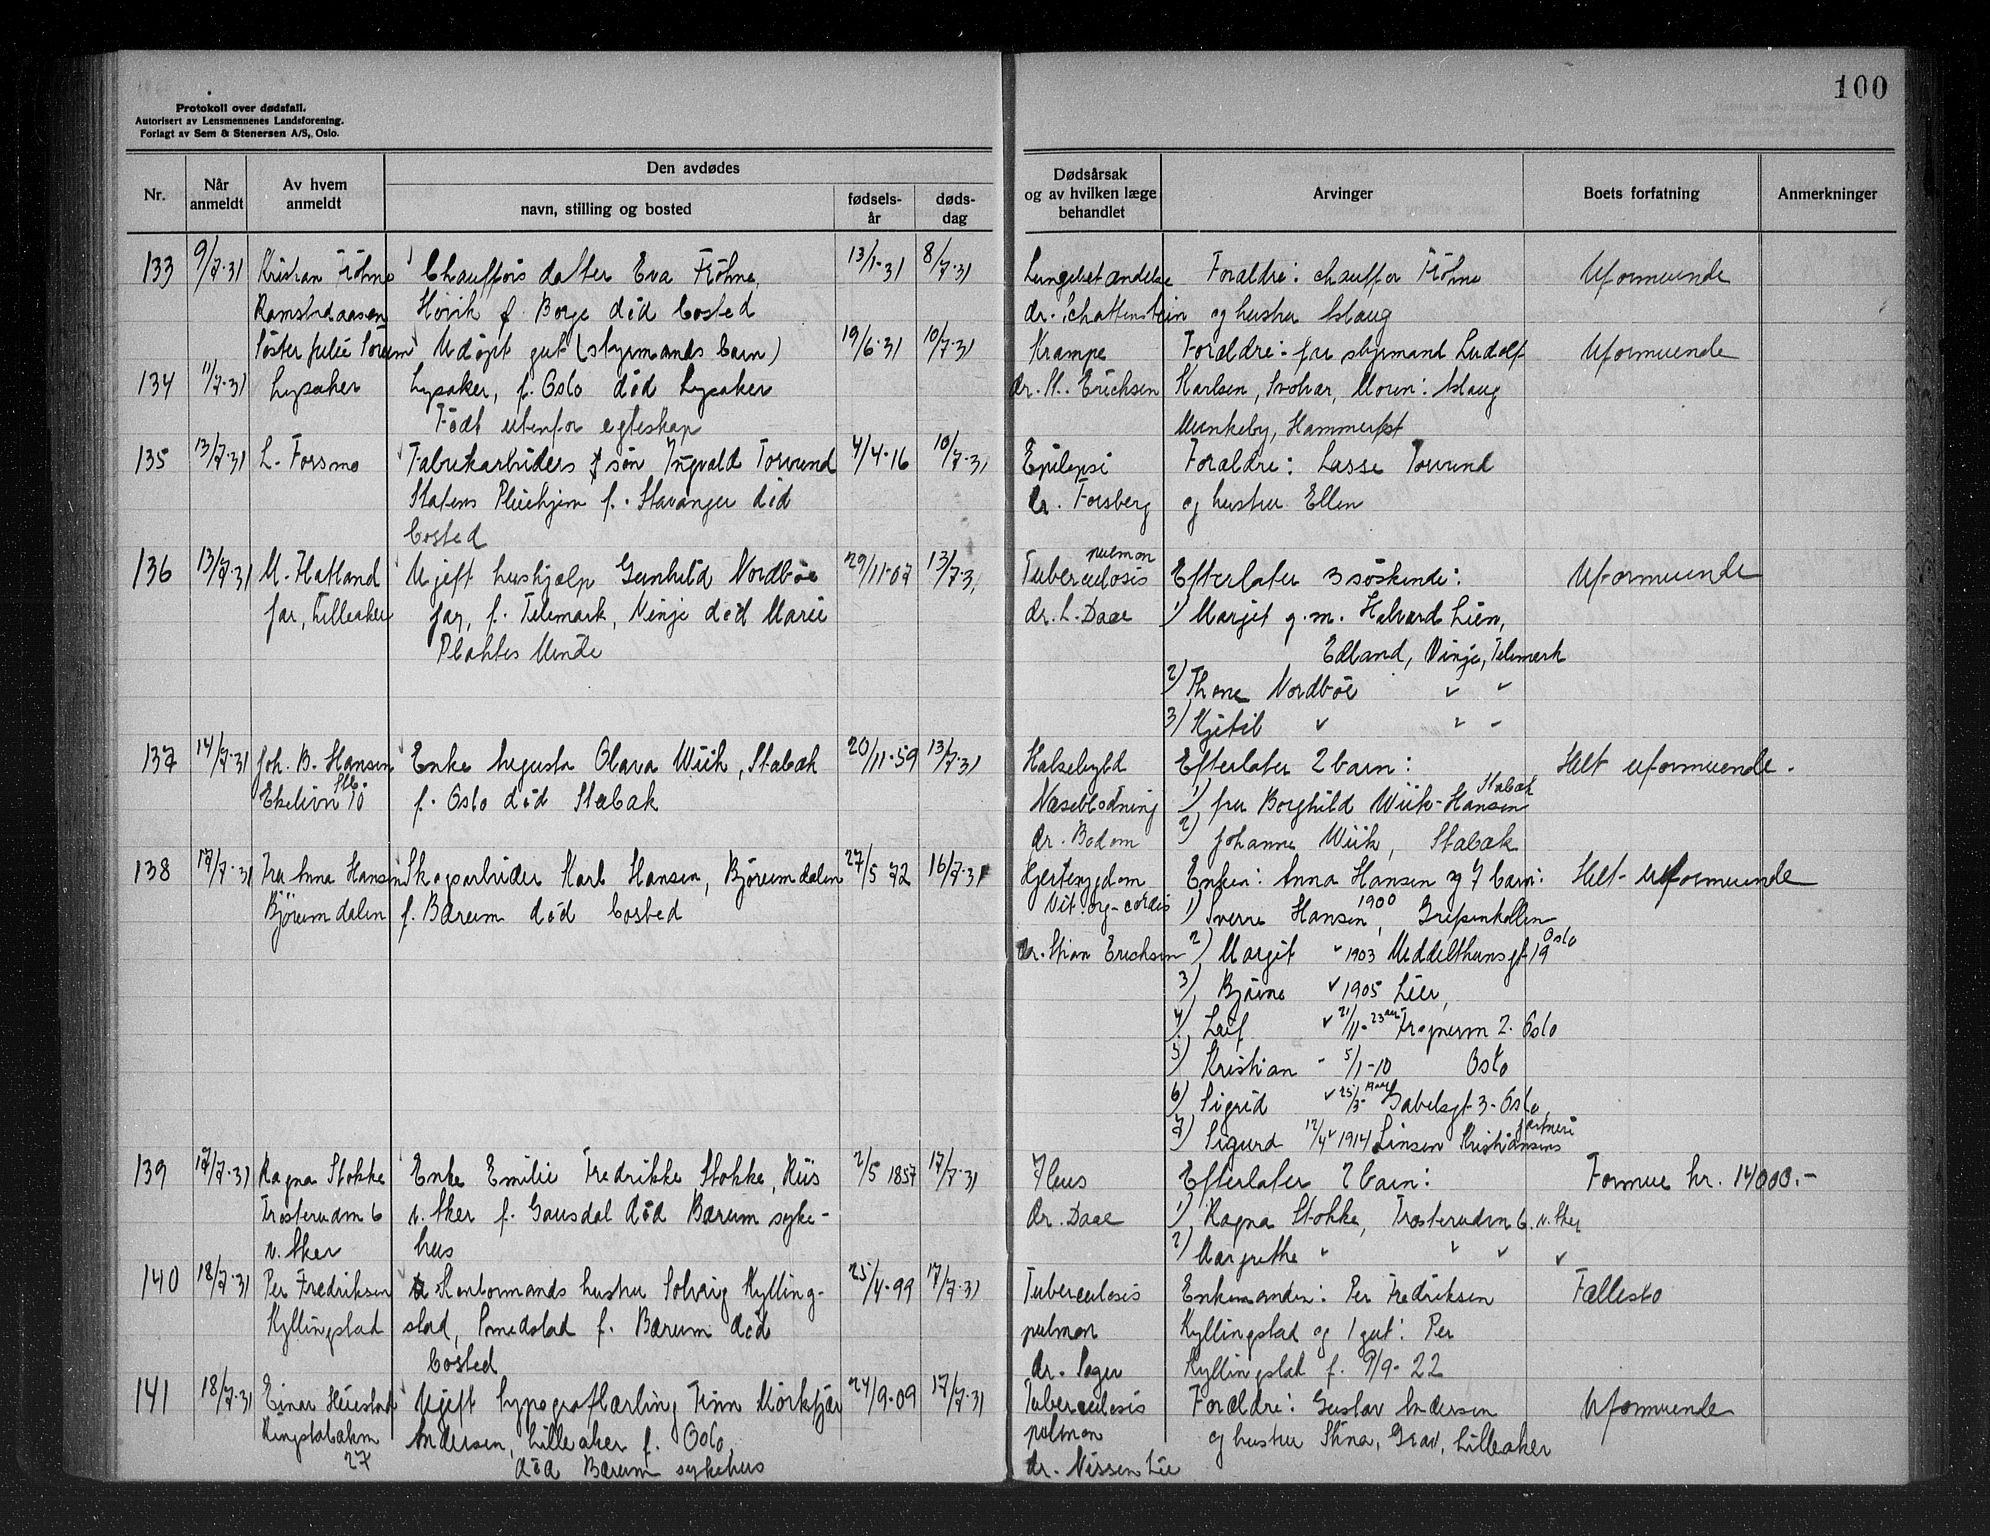 100
Protokoll over dødsfall.
Autorisert av Lensmennenes Landsforening.
Forlagt av Sem & Stenersen A/S, Oslo.
Nr.
Når anmeldt
Av hvem anmeldt
Den avdødes
navn, stilling og bosted
fødsels-år
døds-dag
Dødsårsak og av hvilken læge behandlet
Arvinger
Boets forfatning
Anmerkninger
133 9/7-31 Kristian Fröhne Chaufförs datter Eva Fröhne, 13/1-31 8/7-31 Lungebetændelse Foraldre: chauffør Fröhne Uformuende
Ramstadaasen Hövik f. Borge död bosted dr. og hustru Aslaug
Söster Julie Udöpt gut (styrmands barn) 19/6-31 10/7-31 Krampe Foraldre: far styrmand Ludolf Uformuende
134 11/7-31 Lysaker Lysaker, f. Oslo död Lysaker dr. St. Erichsen Karlsen, Svolvær, Moren: Aslaug
Född utenfor egteskap Munkeby, Hammerfst
135 13/7-31 L. Forsmo Fabrikarbeiders sön Ingvald Torvund 4/4-16 10/7-31 Epilepsi Foraldre: Lasse Torvund
Statens Pleiehjem f. Stavanger död dr. Forsberg og hustru Ellen
bosted
136 13/7-31 M. Hatland Ugift hushjælp Gunhild Nordböe 29/11-07 13/7-31 Tuberculosis pulmon Efterlater 3 söskende: Uformuende
far, Lilleaker far, f. Telemark, Vinje död Marie dr. L. Daae 1) Margit g.m. Halvard Lien,
Plahtes Minde Edland, Vinje, Telemark
2) Thone Nordböe " "
3) Kjetil " " "
137 14/7-31 Joh. B. Hansen Enke Augusta Olava Wiik, Stabæk 20/11-59 13/7-31 Halsebyld Efterlater 2 barn: Helt uformuende.
Ekelivn 10 Stb. f. Oslo död Stabæk Næseblödning 1) fru Borghild Wiik-Hansen Stabæk
dr. Bodom 2) Johanne Wiik, Stabæk
138 17/7-31 Fru Anna Hansen Skogsarbeider Karl Hansen, Bjørumdalen 27/5 72 16/7-31 Hjertesygdom Enken: Anna Hansen og 7 barn: Helt uformuende
Bjørumdalen f. Bærum död bosted Vit. org-cordis 1) Sverre Hansen, 1900 Grefsenkollen
dr. Stian Erichsen 2) Margit " 1903 Middelthunsgt. 19 Oslo
3) Bjarne " 1905 Lier,
4) Leif " 21/11- 23 aar Frognerm 2. Oslo
5) Kristian " 5/1-10 Oslo
6) Sigrid " 25/3- Gabelsgt 3- Oslo
7) Sigurd 12/4 " 1914 Kristiansens gartneri
139 17/7-31 Ragna Stokke Enke Emilie Fredrikke Stokke, Riis 2/5 1857 17/7-31 Ileus Efterlater 2 barn: Formue kr. 14000.-
Trosterudvn 6 v. Aker f. Gausdal död Bærum syke- dr. Daae 1) Ragna Stokke, Trosterudvn 6. v. Aker
v. Aker hus 2) Margrethe " " " "
140 18/7-31 Per Fredriksen Kontormands hustru Solveig Kylling- 25/4-99 17/7-31 Tuberculosis Enkemanden: Per Fredriksen Fællesbo
Kyllingstad stad, Smedstad f. Bærum död pulmon Kyllingstad og 1 gut: Per
bosted dr. Kyllingstad f. 9/9-22
141 18/7-31 Einar Ugift typograflærling Finn Mörkfjær 24/9-09 17/7-31 Tuberculosis Foraldre: Gustav Andersen Uformuende
Ringstabækvn 27 Andersen, Lilleaker f. Oslo, pulmon og hustru Stina, Grav, Lilleaker
död Bærum sykehus dr. Nissen Lie